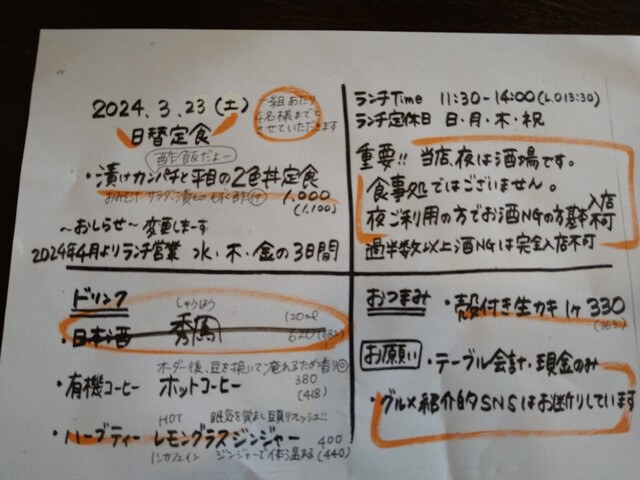 2024.3.23(土)
一組あたり
4名様までと
させていただきます
日替定食
酢飯だよー
・漬けカンパチと平目の2色丼定食
1.000
(1.100)
〜おしらせ〜 変更しまーす
2024年4月よりランチ営業 水・木・金の3日間
ランチTime 11:30-14:00(L.O13:30)
ランチ定休日 日・月・木・祝
重要!! 当店、夜は酒場です。
食事処ではございません。
夜ご利用の方でお酒NGの方基本入店不可
過半数以上酒NGは完全入店不可
ドリンク
しゅうほう
120ml
・日本酒 秀鳳 620(682)
オーダー後、豆を挽いて淹れるため香り◎
・有機コーヒー ホットコーヒー 380
(418)
HOT 眠気を覚まし豆頁リフレッシュ!!
・ハーブティー レモングラスジンジャー 400
ノンカフェイン ジンジャーで体温まる (440)
おつまみ ・殻付き生カキ 1ケ 330
(363)
お願い ・テーブル会計・現金のみ
・グルメ紹介的SNSはお断りしています